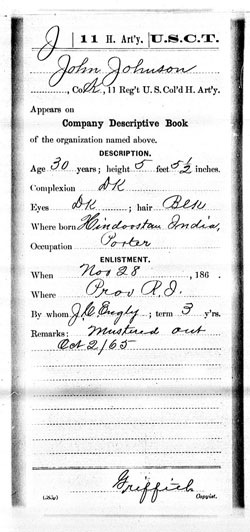 J | 11 H. Art'y. | U.S.C.T.
John Johnson
, Co. A, 11 Reg't U. S. Col'd H. Art'y.
Appears on
Company Descriptive Book
of the organization named above.
DESCRIPTION.
Age 30 years; height 5 feet 5½ inches.
Complexion DK
Eyes DK; hair Blk
Where born Hindoostan India,
Occupation Porter
ENLISTMENT.
When Nov 28, 186 .
Where Prov R.I.
By whom J.C. ; term 3 y'rs.
Remarks: Mustered out
Oct 2/65
Griffith
Copyist.